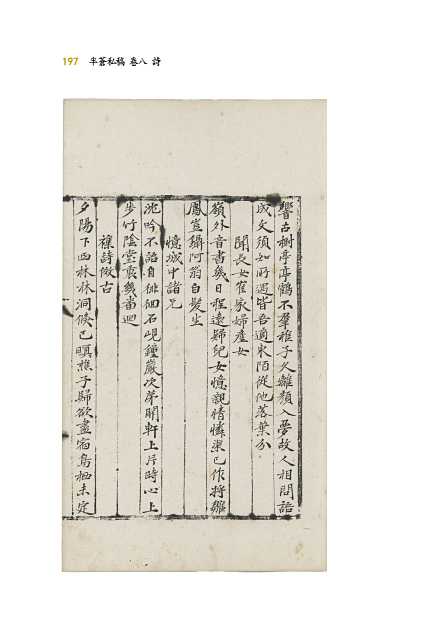 197 半蒼私稿 卷八 詩
響古樹亭亭鶴不羣稚子久離頻入夢故人相問語
成文須如所遇皆吾適東陌從他落葉分
聞長女崔家婦產女
嶺外音書幾日程遠歸兒女憶親情憐渠已作將雛
鳳豈獨阿翁白髮生
憶城中諸兄
沈吟不語自徘徊石峴鐘巖次第開軒上片時心上
步竹陰堂裏幾番迴
雜詩倣古
夕陽下西林林洞倏已暝樵子歸欲盡宿鳥栖未定